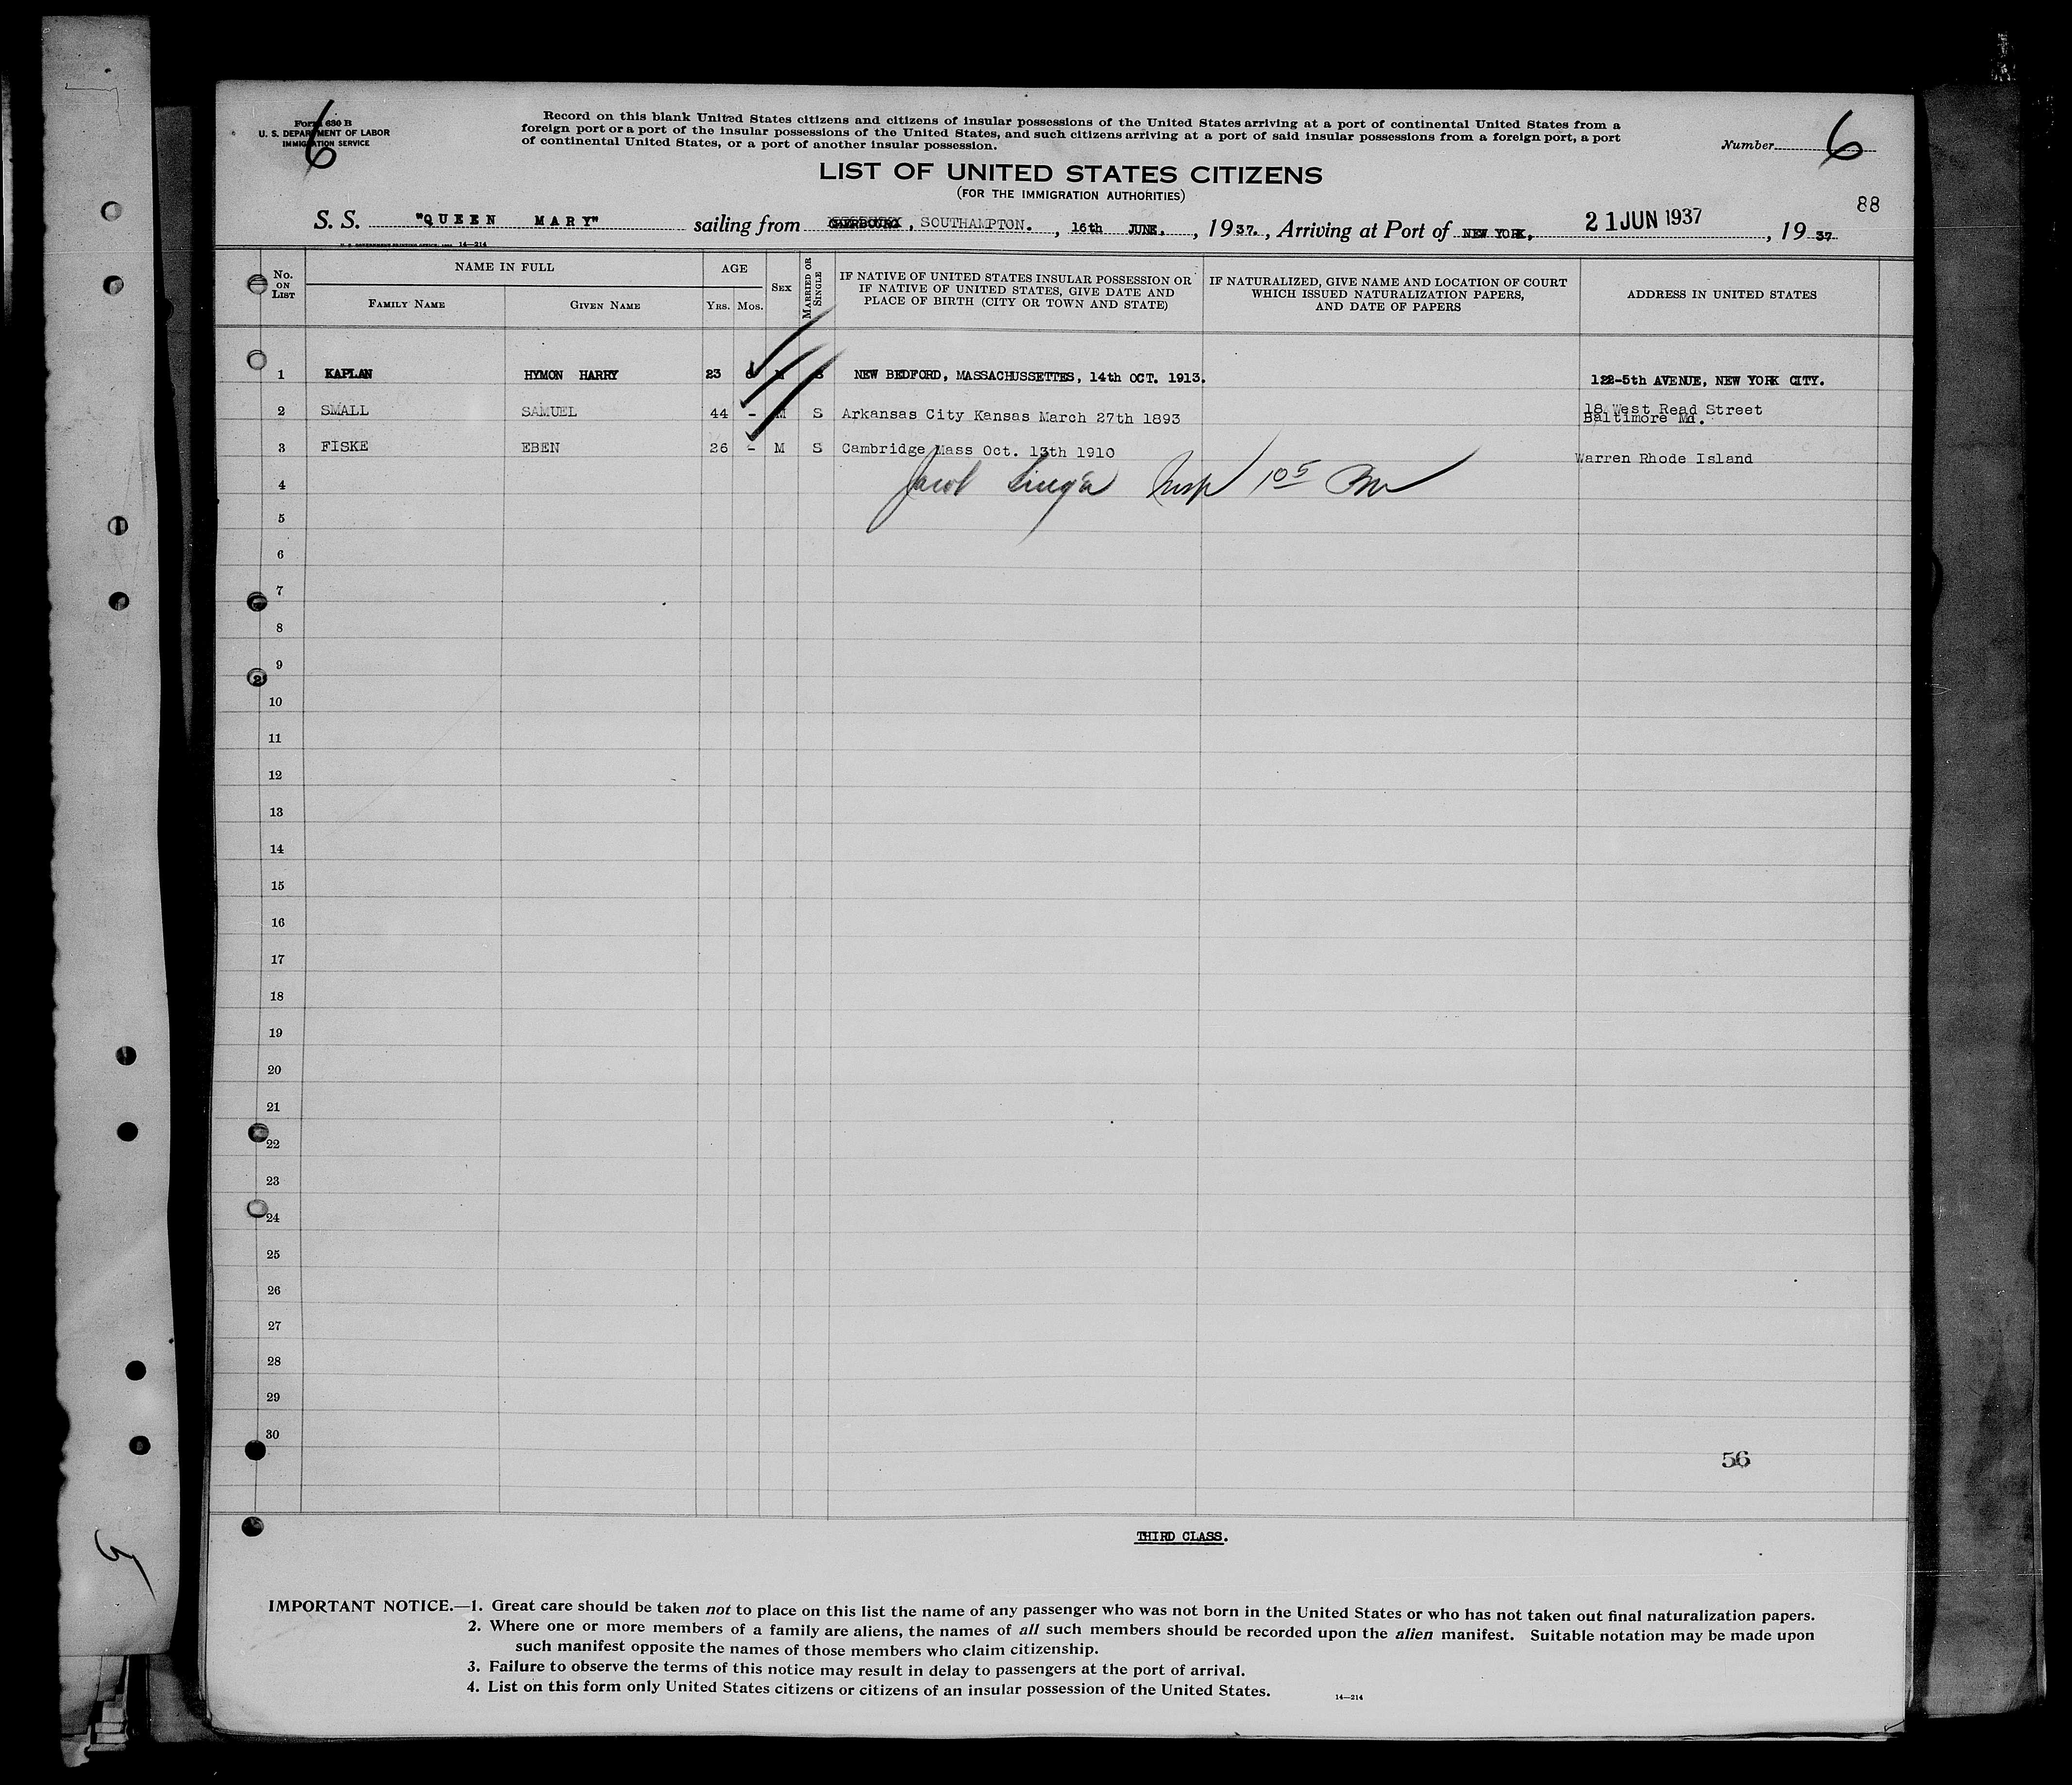 Form 630 B
U. S. DEPARTMENT OF LABOR
IMMIGRATION SERVICE
6
Record on this blank United States citizens and citizens of insular possessions of the United States arriving at a port of continental United States from a
foreign port or a port of the insular possessions of the United States, and such citizens arriving at a port of said insular possessions from a foreign port, a port
of continental United States, or a port of another insular possession.
Number 6
LIST OF UNITED STATES CITIZENS
(FOR THE IMMIGRATION AUTHORITIES)
88
S. S. "QUEEN MARY" sailing from CHERBOURG, SOUTHAMPTON. , 16th JUNE. , 1937. , Arriving at Port of NEW YORK, 21 JUN 1937 , 1937
14—214
No. ON LIST
NAME IN FULL
FAMILY NAME
GIVEN NAME
AGE
YRS. MOS.
SEX
MARRIED OR SINGLE
IF NATIVE OF UNITED STATES INSULAR POSSESSION OR
IF NATIVE OF UNITED STATES, GIVE DATE AND
PLACE OF BIRTH (CITY OR TOWN AND STATE)
IF NATURALIZED, GIVE NAME AND LOCATION OF COURT
WHICH ISSUED NATURALIZATION PAPERS,
AND DATE OF PAPERS
ADDRESS IN UNITED STATES
1 KAPLAN HYMON HARRY 23 M S NEW BEDFORD, MASSACHUSSETTES, 14th OCT. 1913. 122-5th AVENUE, NEW YORK CITY.
2 SMALL SAMUEL 44 - M S Arkansas City Kansas March 27th 1893 18 West Read Street
Baltimore Md.
3 FISKE EBEN 26 - M S Cambridge Mass Oct. 13th 1910 Warren Rhode Island
4 Jacob Insp 105
5
6
7
8
9
10
11
12
13
14
15
16
17
18
19
20
21
22
23
24
25
26
27
28
29
30
56
THIRD CLASS.
IMPORTANT NOTICE.—1. Great care should be taken not to place on this list the name of any passenger who was not born in the United States or who has not taken out final naturalization papers.
2. Where one or more members of a family are aliens, the names of all such members should be recorded upon the alien manifest. Suitable notation may be made upon
such manifest opposite the names of those members who claim citizenship.
3. Failure to observe the terms of this notice may result in delay to passengers at the port of arrival.
4. List on this form only United States citizens or citizens of an insular possession of the United States.
14—214
5